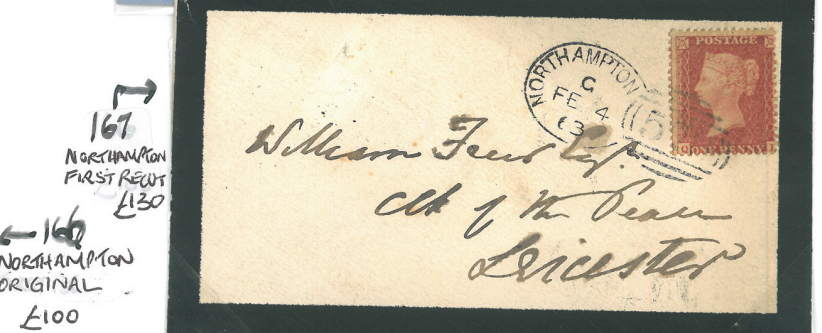 167
NORTHAMPTON
FIRST RECUT
£130
166
NORTHAMPTON
ORIGINAL
£100
NORTHAMPTON
C
FE 4
63
POSTAGE
ONE PENNY
William Freer Esq.
Clk of the Peace
Leicester